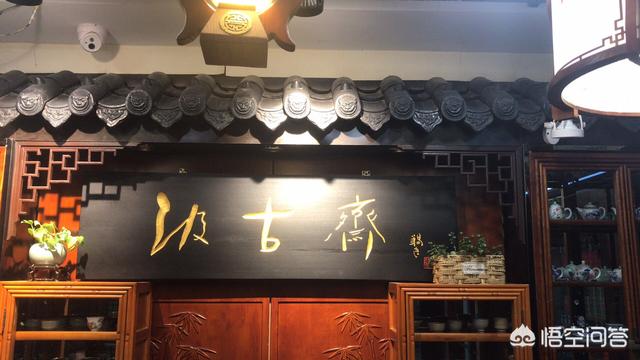 汲古齋
悟空问答